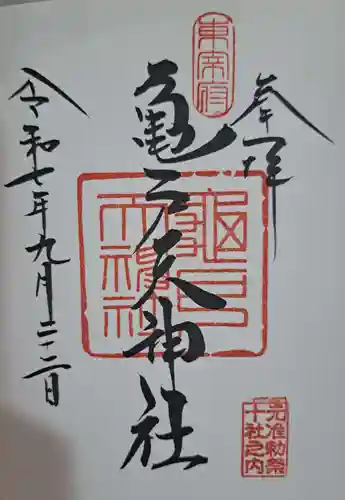 奉拝
東宰府
亀戸天神社
亀戸天神社
元准勅祭
十社之内
令和七年九月二十二日